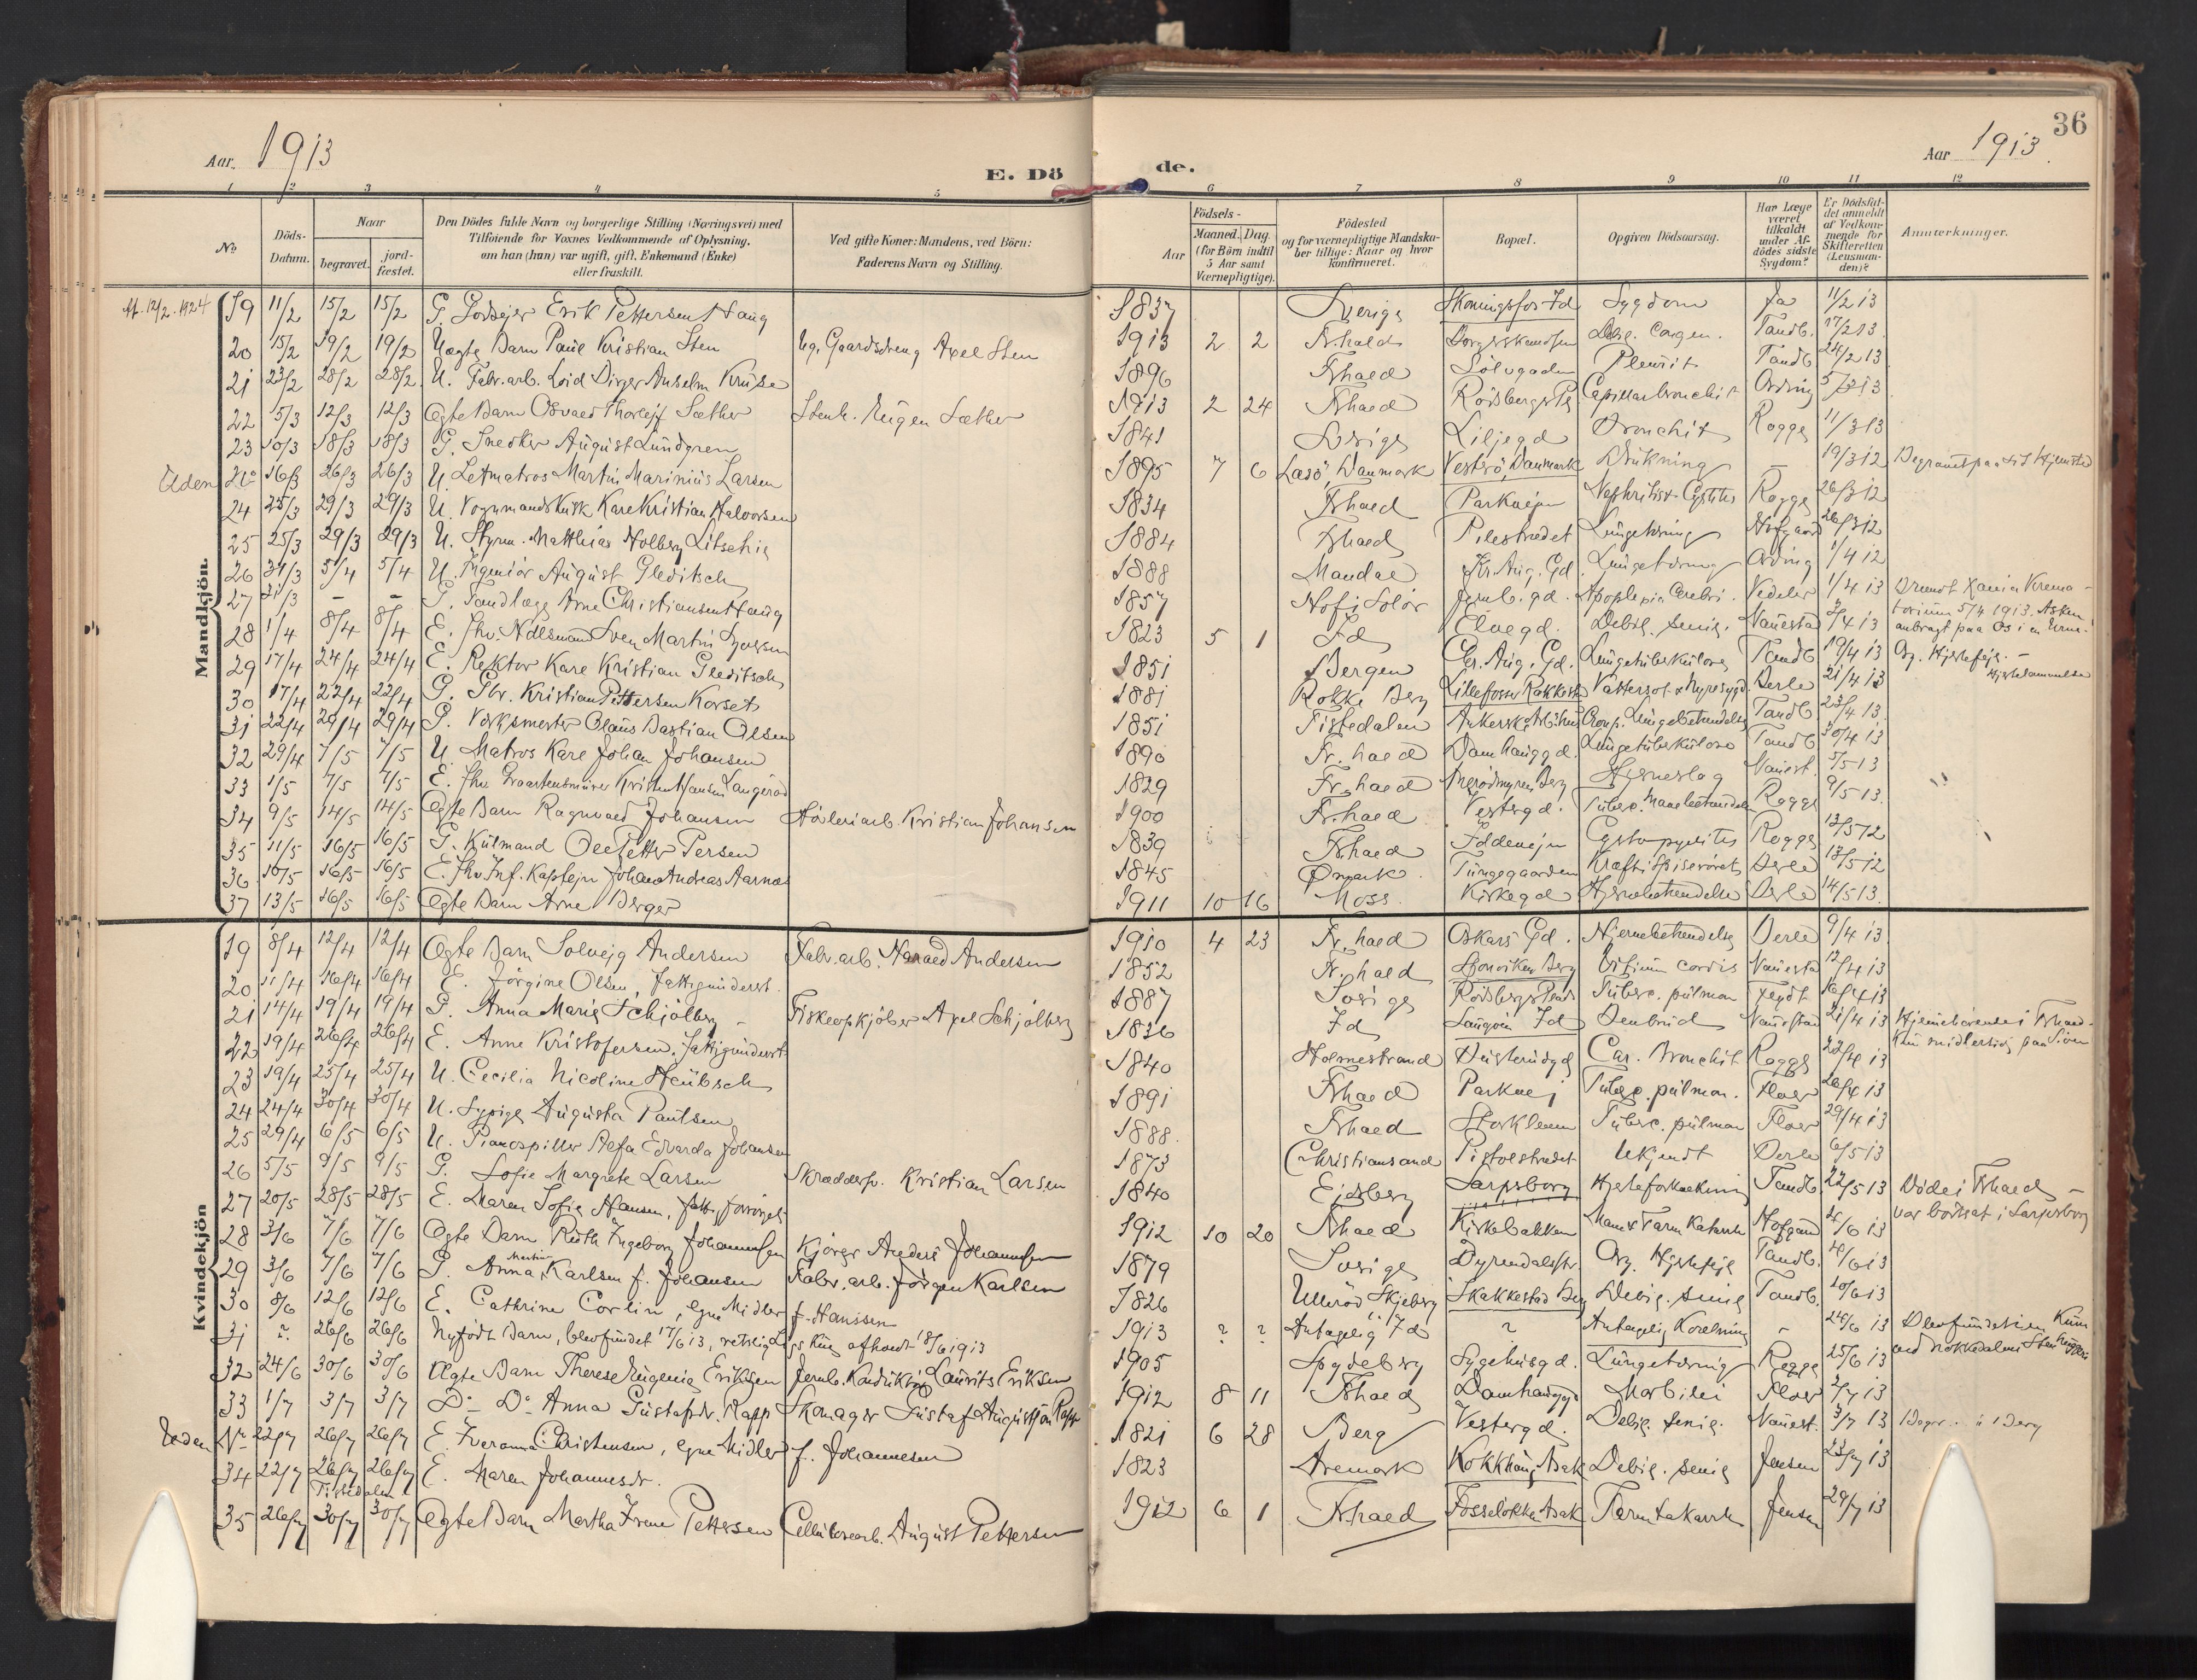 36
Aar. 1913
Aar 1913.
E. Dö de.
1 2 3 4 5 6 7 8 9 10 11 12
No
Döds-Datum.
Naar
begravet.
jord-fæstet.
Den Dödes fulde Navn og borgerlige Stilling (Næringsvei) med
Tilföiende for Voxnes Vedkommende af Oplysning,
om han (hun) var ugift, gift, Enkemand (Enke)
eller fraskilt.
Ved gifte Koner: Mandens, ved Börn:
Faderens Navn og Stilling.
Födsels-
Aar
Maaned. Dag
(for Börn indtil
5 Aar samt
Værnepligtige).
Födested
og for værnepligtige Mandska-
ber tillige: Naar og hvor
konfirmeret.
Bopæl.
Opgiven Dödsaarsag.
Har Læge
været
tilkaldt
under Af-
dödes sidste
Sygdom?
Er Dödsfal-
det anmeldt
af Vedkom-
mende for
Skifteretten
(Lensman-
den)?
Anmærkninger.
Mandkjön.
19 11/2 15/2 15/2 G. Godsejer Erik Pettersen Haug 1837 Sverige Skoningsfos Id Sygdom Ja 11/2 13
20 15/2 19/2 19/2 Uægte Barn Paul Kristian Sten Ug. Gaardsdreng Axel Sten 1913 2 2 Fr.hald Debil. congen. Tandb. 17/2 13
21 23/2 28/2 28/2 U. Fabr.arb. Loid Birger Anselm Kruse 1896 Frhald Sölvgaden Pleurit Tandb 24/2 13
22 5/3 12/3 12/3 Ægte Barn Osvald Thorleif Sæther Stenh. Eugen Sæther 1913 2 24 Frhald Rödsbergs Pl Capillærbronchit Ording 5/3 13
23 10/3 18/3 18/3 G. Snedker August Lundgren 1841 Sverige Liljegd Bronchit Rogge 11/3 13
Uden No 16/3 26/3 26/3 U. Letmatros Martin Marinius Larsen 1895 7 6 Læsö, Danmark Vesterö, Danmark Drukning – 19/3 12
24 25/3 29/3 29/3 U. Vognmandskusk Karl Kristian Halvorsen 1834 Frhald Parkvejen Rogge 26/3 12
25 25/3 29/3 29/3 U. Styrm. Matthias Holberg 1884 Frhald Pilestrædet Lungetæring Hofgaard 26/3 12
26 31/3 5/4 5/4 U. Ingeniör August Gleditsch 1888 Mandal Kr. Aug. Gd. Lungetæring Ording 1/4 12
27 31/3 – – G. Tandlæge Arne Christiansen Haug 1857 Hof i Solör Jernb. gd. Apoplexia Cerebri. Vedeler 1/4 13 Brændt Xania Krema-
torium 5/4 1913. Asken
anbragt paa Os i en Urne.
28 1/4 8/4 8/4 E. Fhv. Sven Martin 1823 5 1 Id Elvegd. Debil. senil. 2/4 13
29 17/4 24/4 24/4 E. Rektor Karl Kristian Gleditsch 1851 Bergen Chr. Aug. Gd. Lungetuberkulose Tandb 19/4 13 Org. Hjertefejl. –
Hjertelammelse
30 17/4 22/4 22/4 G. Gbr. Kristian Pettersen Korset 1881 Rokke Berg Lillefosse Rakkestad Vattersot & Nyresygd. Berle 21/4 13
31 22/4 29/4 29/4 G. Værksmester Olaus Bastian Olsen 1851 Tistedalen Croup. Lungebetændelse Tandb 23/4 13
32 29/4 7/5 7/5 U. Matros Karl Johan Johansen 1890 Fr.hald Damhauggd. Lungetuberkulose Tandb 30/4 13
33 1/5 7/5 7/5 E. Fhv. Kristen Hansen Langeröd 1829 Fr.hald Hjerneslag 3/5 13
34 9/5 14/5 14/5 Ægte Barn Ragnvald Johansen Hövleriarb. Kristian Johansen 1900 Fr.hald Vestergd. Rogge 9/5 13
35 11/5 16/5 16/5 G. Kulmand Ole Petter Persen 1839 Frhald Iddevejen Cystopyelitis Rogge 13/5 12
36 10/5 16/5 16/5 E. Fhv. Inf. Kaptejn Johan Andreas Aarnæs 1845 Ømark Tungegaarden Kræft i Spiserøret Berle 13/5 12
37 13/5 16/5 16/5 Ægte Barn Arne Berger 1911 10 16 Moss. Kirkegd Hjernebetændelse Berle 14/5 13
Kvindekjön
19 8/4 12/4 12/4 Ægte Barn Solvejg Andersen Fabr.arb. Harald Andersen 1910 4 23 Fr.hald Oskars Gd. Hjernebetændelse Berle 9/4 13
20 11/4 16/4 16/4 E. Jörgine Olsen, Fattigunderst. 1852 Fr.hald Vitium cordis 12/4 13
21 14/4 19/4 19/4 G. Anna Marie Schjölberg – Fiskeopkjöber Axel Schjölberg 1887 Sverige Tuberc. pulmon 16/4 13
22 19/4 26/4 26/4 E. Anne Kristofersen, Fattigunderst. 1836 Id Id Benbrud 21/4 13
23 19/4 25/4 25/4 U. Cecilia Nicoline Heübsch 1840 Holmestrand Cap. Bronchit Rogge 22/4 13
24 24/4 30/4 30/4 U. Sypige Augusta Paulsen 1891 Frhald Parkvej Tuberc. pulmon. Floer 26/4 13
25 29/4 6/5 6/5 U. Pianospiller Alfa Edvarda Johansen 1888. Frhald Storkleven Tuberc. pulmon Floer 29/4 13
26 5/5 9/5 9/5 G. Sofie Margrete Larsen Skrædder Kristian Larsen 1873 Christiansand Pistolstrædet Ukjendt Berle 6/5 13
27 20/5 28/5 28/5 E. Maren Sofie Hansen, 1840 Ejdsberg Sarpsborg Hjerteforkalkning Tandb. 22/5 13 Döde i Frhald –
var bosat i Sarpsborg
28 3/6 7/6 7/6 Ægte Barn Ruth Ingeborg Johannesen Kjörer Anders Johannesen 1912 10 20 Frhald Kirkebakken Mave & Tarm Katarrh Hofgaard 4/6 13
29 3/6 7/6 7/6 G. Anna Karlsen f. Johansen Fabr.arb. Jörgen Karlsen 1879 Sverige Dyrendalsstr. Org. Hjertefejl Tandb. 4/6 13
30 8/6 12/6 12/6 E. Cathrine Corlin, egne Midler f. Hanssen 1826 Ulleröd Skjeberg Skakkestad Berg Debil. senil Tandb. 10/6 13
31 ? 26/6 26/6 Nyfödt Barn, blev fundet 17/6 13, afholdt 18/6 1913 1913 ? ? Antagelig Id ? Antagelig Kvælning – 24/6 13
32 24/6 30/6 30/6 Ægte Barn Therese Eugenie Eriksen Jernb. Konduktör Laurits Eriksen 1905 Spydeberg Sygehusgd. Lungetæring Rogge 25/6 13
33 1/7 3/7 3/7 Do Do Anna Gustafsdr. Rapp Skomager Gustaf Rapp 1912 8 11 Frhald Morbilli Floer 2/7 13
Uden No 22/7 26/7 26/7 E. Christensen, egne Midler f. Johannesen 1821 6 28 Berg Vestergd. Debil. senil. 3/7 13 Berg
34 22/7 26/7 26/7 E. Maren Johannesdr. 1823 Aremark Debil. senil Jensen 23/7 13
Tistedalen
35 26/7 30/7 30/7 Ægte Barn Martha Irene Pettersen Cellulosearb. August Pettersen 1912 6 1 Frhald Fosselökken Asak Tarmkatarrh Jensen 29/7 13